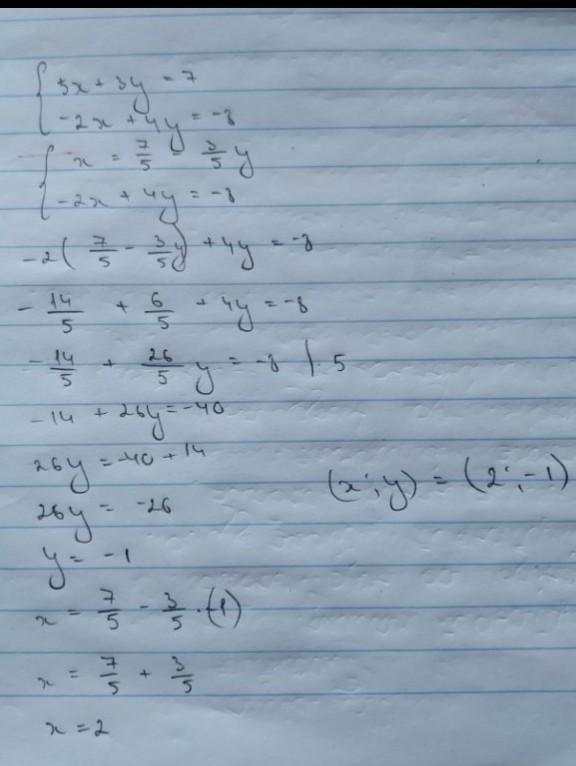 5x + 3y = 7
-2x + 4y = -8
x = 7/5 - 3/5 y
-2x + 4y = -8
-2(7/5 - 3/5 y) + 4y = -8
-14/5 + 6/5 + 4y = -8
-14/5 + 26/5 y = -8 |·5
-14 + 26y = -40
26y = -40 + 14
26y = -26
y = -1
x = 7/5 - 3/5 · (-1)
x = 7/5 + 3/5
x = 2
(x ; y) = (2 ; -1)